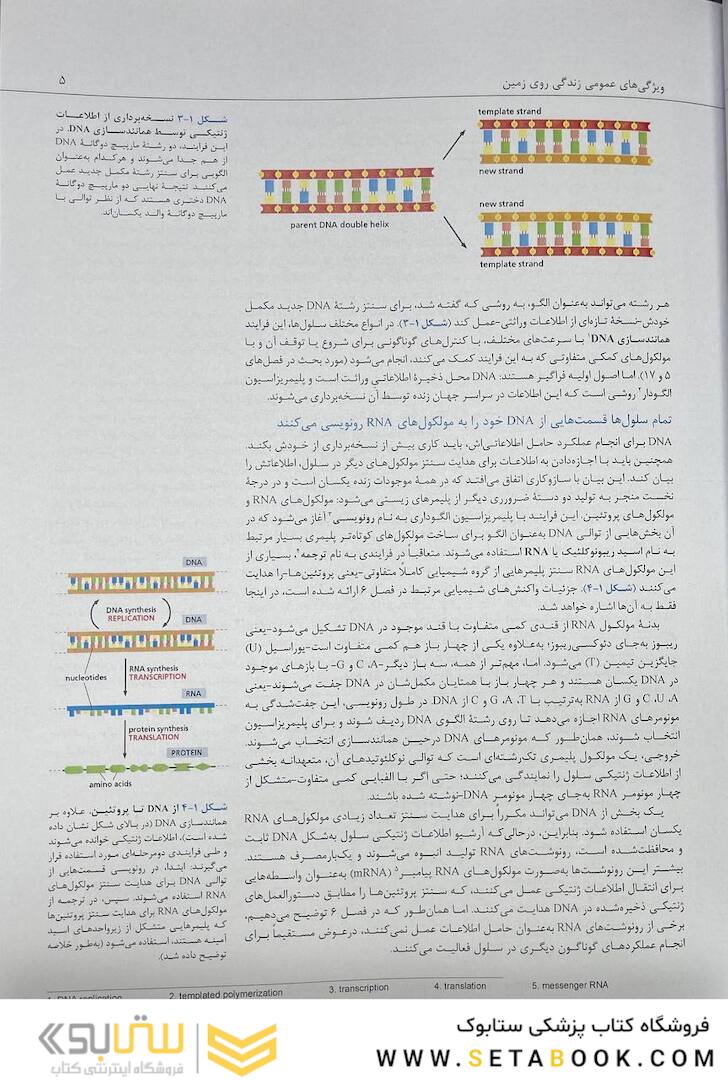 ویژگی‌های عمومی زندگی روی زمین
۵
شکل ۱-۳ نسخه‌برداری از اطلاعات
ژنتیکی توسط همانندسازی DNA. در
این فرایند، دو رشتهٔ مارپیچ دوگانهٔ DNA
از هم جدا می‌شوند و هرکدام به‌عنوان
الگویی برای سنتز رشتهٔ مکمل جدید عمل
می‌کنند. نتیجهٔ نهایی دو مارپیچ دوگانهٔ
DNA دختری هستند که از نظر توالی با
مارپیچ دوگانهٔ والد یکسان‌اند.
template strand
new strand
parent DNA double helix
new strand
template strand
هر رشته می‌تواند به‌عنوان الگو، به روشی که گفته شد، برای سنتز رشتهٔ DNA جدید مکمل
خودش-نسخهٔ تازه‌ای از اطلاعات وراثتی-عمل کند (شکل ۱-۳). در انواع مختلف سلول‌ها، این فرایند
همانندسازی DNA۱ با سرعت‌های مختلف، با کنترل‌های گوناگونی برای شروع یا توقف آن و با
مولکول‌های کمکی متفاوتی که به این فرایند کمک می‌کنند، انجام می‌شود (مورد بحث در فصل‌های
۵ و ۱۷). اما اصول اولیه فراگیر هستند: DNA محل ذخیرهٔ اطلاعاتی وراثت است و پلیمریزاسیون
الگودار۲ روشی است که این اطلاعات در سراسر جهان زنده توسط آن نسخه‌برداری می‌شوند.
تمام سلول‌ها قسمت‌هایی از DNA خود را به مولکول‌های RNA رونویسی می‌کنند
DNA برای انجام عملکرد حامل اطلاعاتی‌اش، باید کاری بیش از نسخه‌برداری از خودش بکند.
همچنین باید با اجازه‌دادن به اطلاعات برای هدایت سنتز مولکول‌های دیگر در سلول، اطلاعاتش را
بیان کند. این بیان با سازوکاری اتفاق می‌افتد که در همهٔ موجودات زنده یکسان است و در درجهٔ
نخست منجر به تولید دو دستهٔ ضرورری دیگر از پلیمرهای زیستی می‌شود: مولکول‌های RNA و
مولکول‌های پروتئین. این فرایند با پلیمریزاسیون الگوداری به نام رونویسی۳ آغاز می‌شود که در
آن بخش‌هایی از توالی DNA به‌عنوان الگو برای ساخت مولکول‌های کوتاه‌تر پلیمری بسیار مرتبط
به نام اسید ریبونوکلئیک یا RNA استفاده می‌شوند. متعاقباً در فرایندی به نام ترجمه۴، بسیاری از
این مولکول‌های RNA سنتز پلیمرهایی از گروه شیمیایی کاملاً متفاوتی-یعنی پروتئین‌ها-را هدایت
می‌کنند (شکل ۱-۴). جزئیات واکنش‌های شیمیایی مرتبط در فصل ۶ ارائه شده است، در اینجا
فقط به آن‌ها اشاره خواهد شد.
بدنهٔ مولکول RNA از قندی کمی متفاوت با قند موجود در DNA تشکیل می‌شود-یعنی
ریبوز به‌جای دئوکسی‌ریبوز؛ به‌علاوه یکی از چهار باز هم کمی متفاوت است-یوراسیل (U)
جایگزین تیمین (T) می‌شود. اما، مهم‌تر از همه، سه باز دیگر-A، C و G- با بازهای موجود
در DNA یکسان هستند و هر چهار باز با همتایان مکمل‌شان در DNA جفت می‌شوند-یعنی
A، U، C و G از RNA به‌ترتیب با T، A، G و C از DNA. در طول رونویسی، این جفت‌شدگی به
مونومرهای RNA اجازه می‌دهد تا روی رشتهٔ الگوی DNA ردیف شوند و برای پلیمریزاسیون
انتخاب شوند، همان‌طور که مونومرهای DNA درحین همانندسازی انتخاب می‌شوند.
خروجی، یک مولکول پلیمری تک‌رشته‌ای است که توالی نوکلئوتیدهای آن، متعهدانه بخشی
از اطلاعات ژنتیکی سلول را نمایندگی می‌کنند؛ حتی اگر با الفبایی کمی متفاوت-متشکل از
چهار مونومر RNA به‌جای چهار مونومر DNA-نوشته شده باشند.
یک بخش از DNA می‌تواند مکرراً برای هدایت سنتز تعداد زیادی مولکول‌های RNA
یکسان استفاده شود. بنابراین، درحالی‌که آرشیو اطلاعات ژنتیکی سلول به‌شکل DNA ثابت
و محافظت‌شده است، رونوشت‌های RNA تولید انبوه می‌شوند و یک‌بارمصرف هستند.
بیشتر این رونوشت‌ها به‌صورت مولکول‌های RNA پیامبر۵ (mRNA) به‌عنوان واسطه‌هایی
برای انتقال اطلاعات ژنتیکی عمل می‌کنند، که سنتز پروتئین‌ها را مطابق دستورالعمل‌های
ژنتیکی ذخیره‌شده در DNA هدایت می‌کنند. اما همان‌طور که در فصل ۶ توضیح می‌دهیم،
برخی از رونوشت‌های RNA به‌عنوان حامل اطلاعات عمل نمی‌کنند، درعوض مستقیماً برای
انجام عملکردهای گوناگون دیگری در سلول فعالیت می‌کنند.
DNA
DNA synthesis
REPLICATION
DNA
nucleotides
RNA synthesis
TRANSCRIPTION
RNA
protein synthesis
TRANSLATION
PROTEIN
amino acids
شکل ۱-۴ از DNA تا پروتئین. علاوه بر
همانندسازی DNA (در بالای شکل نشان داده
شده است)، اطلاعات ژنتیکی خوانده می‌شوند
و طی فرایندی دومرحله‌ای مورد استفاده قرار
می‌گیرند: ابتدا، در رونویسی قسمت‌هایی از
توالی DNA برای هدایت سنتز مولکول‌های
RNA استفاده می‌شوند. سپس، در ترجمه از
مولکول‌های RNA برای هدایت سنتز پروتئین‌ها
که پلیمرهایی متشکل از زیرواحدهای اسید
آمینه هستند، استفاده می‌شود (به‌طور خلاصه
توضیح داده شد).
1. DNA replication
2. templated polymerization
3. transcription
4. translation
5. messenger RNA
فروشگاه کتاب پزشکی ستابوک
WWW.SETABOOK.COM
ستابوک
فروشگاه اینترنتی کتاب